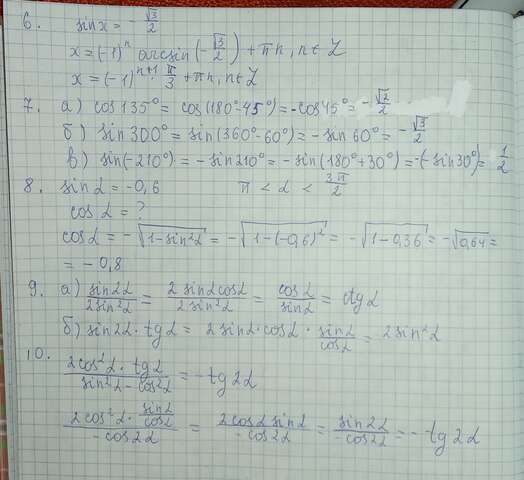 6. sin x = -√3/2
x = (-1)ⁿ arcsin(-√3/2) + πn, n∈Z
x = (-1)ⁿ⁺¹ · π/3 + πn, n∈Z
7. а) cos135° = cos(180°-45°) = -cos45° = -√2/2
б) sin300° = sin(360°-60°) = -sin60° = -√3/2
в) sin(-210°) = -sin210° = -sin(180°+30°) = -(-sin30°) = 1/2
8. sinα = -0,6 π < α < 3π/2
cosα = ?
cosα = -√(1-sin²α) = -√(1-(-0,6)²) = -√(1-0,36) = -√0,64 =
= -0,8
9. а) sin2α/2sin²α = 2sinαcosα/2sin²α = cosα/sinα = ctgα
б) sin2α · tgα = 2sinα·cosα · sinα/cosα = 2sin²α
10. 2cos²α · tgα/sin²α-cos²α = -tg2α
2cos²α · sinα/cosα/-cos2α = 2cosα sinα/-cos2α = sin2α/-cos2α = -tg2α